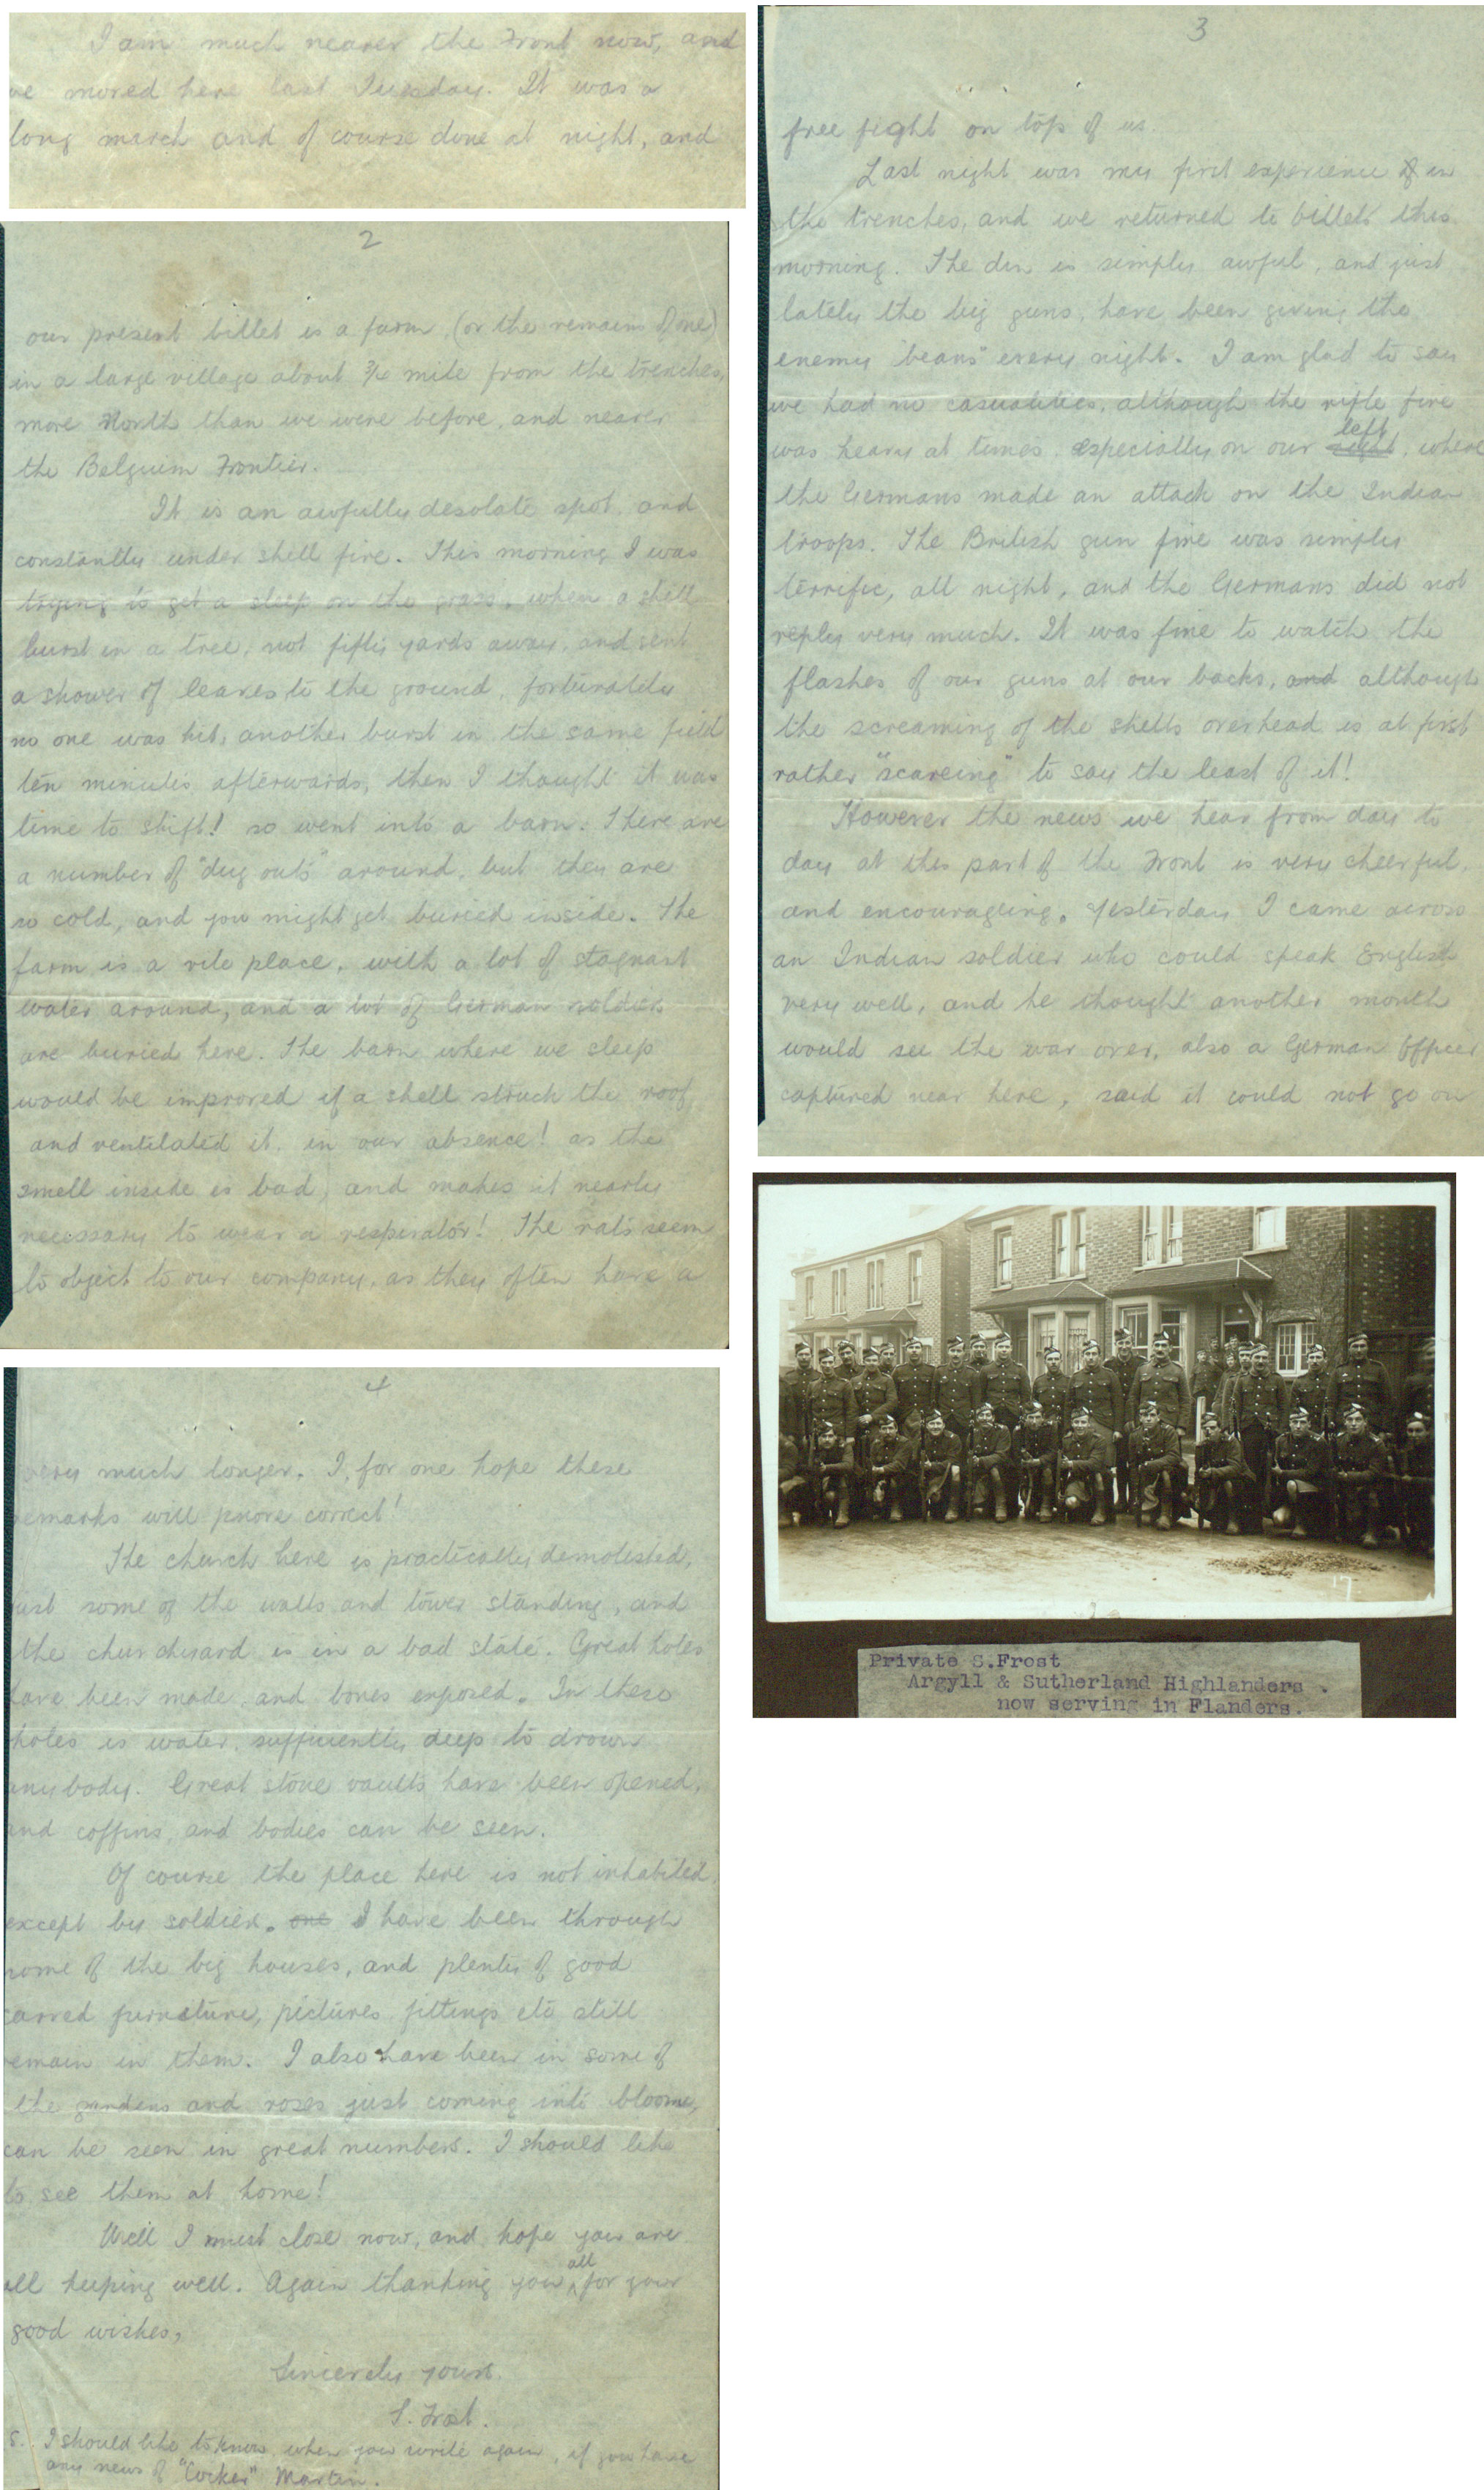 I am much nearer the Front now, and
we moved here last Tuesday. It was a
long march and of course done at night, and
2
our present billet is a farm, (or the remains of one)
in a large village about 3/4 mile from the trenches,
more North than we were before, and nearer
the Belguim Frontier.
It is an awfully desolate spot, and
constantly under shell fire. This morning I was
trying to get a sleep on the grass, when a shell
burst in a tree, not fifty yards away, and sent
a shower of leaves to the ground, fortunately
no one was hit, another burst in the same field
ten minutes afterwards, then I thought it was
time to shift! so went into a barn. There are
a number of "dug outs" around, but they are
so cold, and you might get buried inside. The
farm is a vile place, with a lot of stagnant
water around, and a lot of German soldiers
are buried here. The barn where we sleep
would be improved if a shell struck the roof
and ventilated it, in our absence! as the
smell inside is bad, and makes it nearly
necessary to wear a respirator! The rats seem
to object to our company, as they often have a
3
free fight on top of us.
Last night was my first experience of in
the trenches, and we returned to billets this
morning. The din is simply awful, and just
lately the big guns, have been giving the
enemy "beans" every night. I am glad to say
we had no casualities, although the rifle fire
was heavy at times, especially on our right left, where
the Germans made an attack on the Indian
troops. The British gun fire was simply
terrific, all night, and the Germans did not
reply very much. It was fine to watch the
flashes of our guns at our backs, and although
the screaming of the shells overhead is at first
rather "scareing" to say the least of it!
However the news we hear from day to
day at this part of the Front is very cheerful,
and encouraging. Yesterday I came across
an Indian soldier who could speak English
very well, and he thought another month
would see the war over, also a German Officer
captured near here, said it could not go on
4
very much longer. I, for one hope these
remarks will prove correct!
The church here is practically demolished,
just some of the walls and tower standing, and
the churchyard is in a bad state. Great holes
have been made, and bones exposed. In these
holes is water, sufficiently deep to drown
anybody. Great stone vaults have been opened,
and coffins, and bodies can be seen.
Of course the place here is not inhabited
except by soldiers. one I have been through
some of the big houses, and plenty of good
carved furniture, pictures, fittings etc still
remain in them. I also have been in some of
the gardens and roses just coming into bloome,
can be seen in great numbers. I should like
to see them at home!
Well I must close now, and hope you are
all keeping well. Again thanking you all for your
good wishes,
Sincerely yours.
S. Frost.
S. I should like to know when you write again, if you have
any news of "Cocker" Martin.
17
Private S.Frost
Argyll & Sutherland Highlanders.
now serving in Flanders.